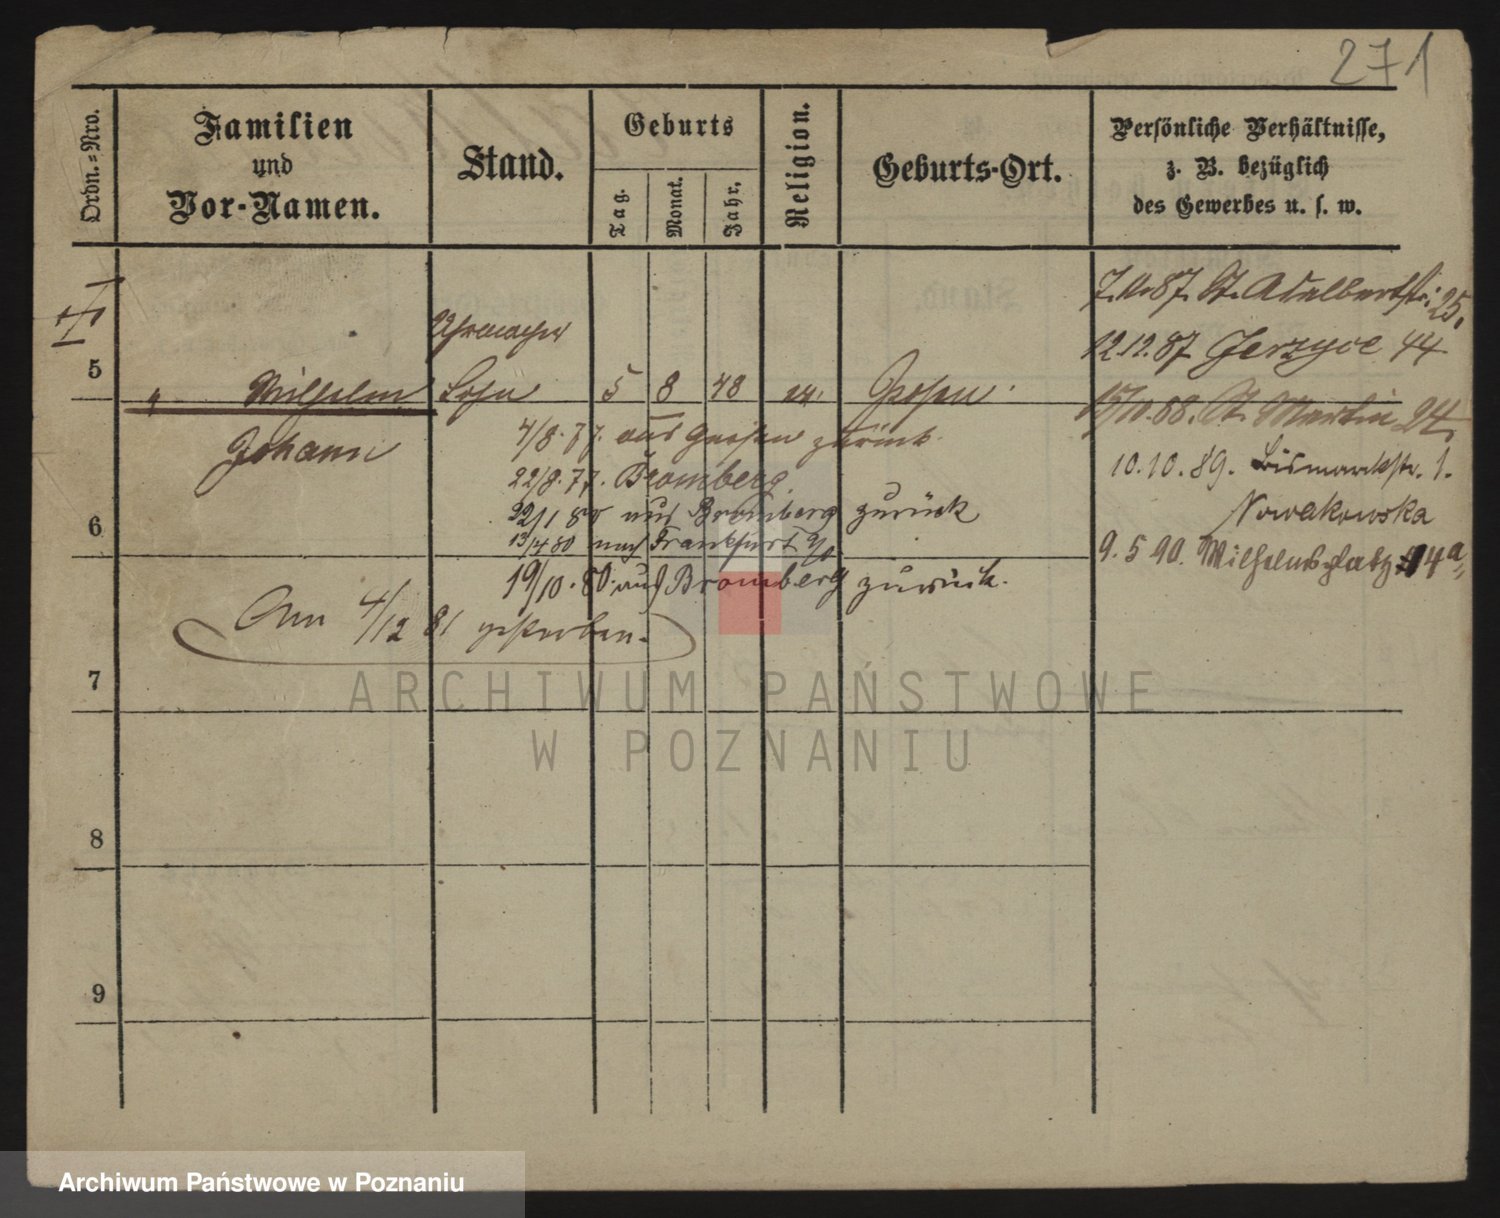 271
Ordn.=Nro.
Familien
und
Vor-Namen.
Stand.
Geburts
Tag.
Monat.
Jahr.
Religion.
Geburts-Ort.
Persönliche Verhältnisse,
z. B. bezüglich
des Gewerbes u. s. w.
7.10.87. St. Adalbertstr. 25.
Uhrmacher
12.12.87 Jerzyce 44
5
" Wilhelm Sohn 5 8 48 Posen
Johann
15/10.88. St. Martin 24.
4/8.77. aus Gnesen zurück.
10.10.89. Bismarckstr. 1.
22/8.77. Bromberg.
Nowakowska
6
22/1 80 aus Bromberg zurück
13/4 80 nach Frankfurt a/O
9.5.90. Wilhelmsplatz 14a
19/10.80. aus Bromberg zurück.
Am 4/12 81 gestorben.
7
8
9
ARCHIWUM PAŃSTWOWE
W POZNANIU
Archiwum Państwowe w Poznaniu